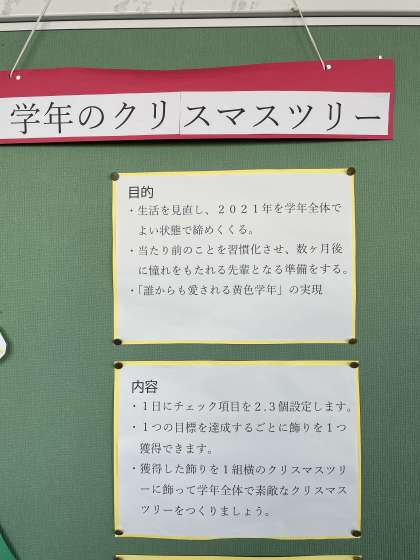 学年のクリスマスツリー
目的
・生活を見直し、２０２１年を学年全体で
よい状態で締めくくる。
・当たり前のことを習慣化させ、数ヶ月後
に憧れをもたれる先輩となる準備をする。
・「誰からも愛される黄色学年」の実現
内容
・１日にチェック項目を２.３個設定します。
・１つの目標を達成するごとに飾りを１つ
獲得できます。
・獲得した飾りを１組横のクリスマスツリ
ーに飾って学年全体で素敵なクリスマス
ツリーをつくりましょう。